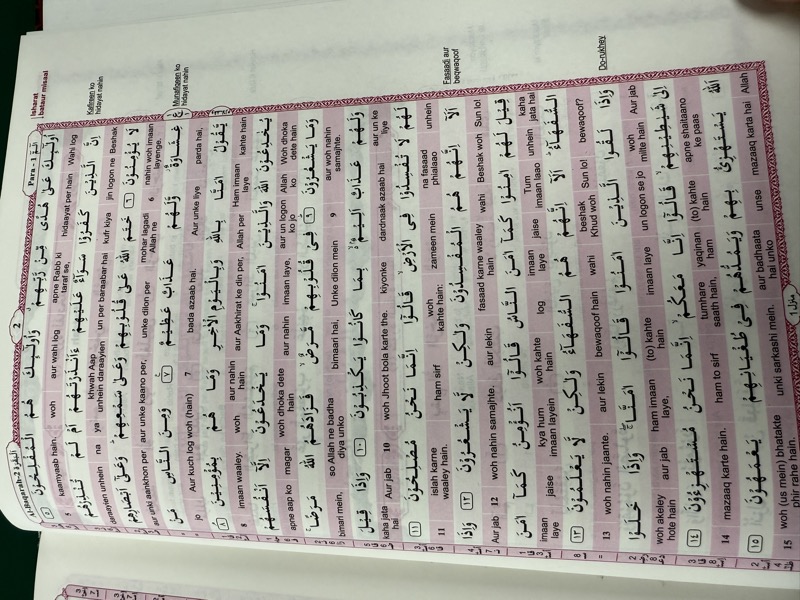 Al-Baqarah-2 البقرة ٢
2
Para - 1 الٓمّٓ ١
أُولَٰئِكَ عَلَىٰ هُدًى مِّن رَّبِّهِمْ وَأُولَٰئِكَ هُمُ الْمُفْلِحُونَ ٥
5 kamyaab hain. woh aur wahi log apne Rabb ki taraf se, hidaayat per hain Wahi log
إِنَّ الَّذِينَ كَفَرُوا سَوَاءٌ عَلَيْهِمْ ءَأَنذَرْتَهُمْ أَمْ لَمْ تُنذِرْهُمْ
daraayien unhein na ya khwah Aap unhein daraayien un per baraabar hai kufr kiya jin logon ne Beshak
لَا يُؤْمِنُونَ ٦ خَتَمَ اللَّهُ عَلَىٰ قُلُوبِهِمْ وَعَلَىٰ سَمْعِهِمْ وَعَلَىٰ أَبْصَارِهِمْ
aur unki aankhon per, aur unke kaano per, unke dilon per mohar lagadi Allah ne 6 nahin woh imaan layenge.
غِشَاوَةٌ وَلَهُمْ عَذَابٌ عَظِيمٌ ٧ وَمِنَ النَّاسِ مَن
jo Aur kuch log woh (hain) 7 bada azaab hai. Aur unke liye parda hai,
يَقُولُ آمَنَّا بِاللَّهِ وَبِالْيَوْمِ الْآخِرِ وَمَا هُم بِمُؤْمِنِينَ ٨
8 imaan waaley. woh aur nahin hain aur Aakhirat ke din per, Allah per Ham imaan laye kahte hain
يُخَادِعُونَ اللَّهَ وَالَّذِينَ آمَنُوا وَمَا يَخْدَعُونَ إِلَّا أَنفُسَهُمْ
apne aap ko magar woh dhoka dete hain aur nahin imaan laye, aur un logon ko jo Allah ko Woh dhoka dete hain
وَمَا يَشْعُرُونَ ٩ فِي قُلُوبِهِم مَّرَضٌ فَزَادَهُمُ اللَّهُ مَرَضًا
bimari mein, so Allah ne badha diya unko bimaari hai, Unke dilon mein 9 aur woh nahin samajhte.
وَلَهُمْ عَذَابٌ أَلِيمٌ بِمَا كَانُوا يَكْذِبُونَ ١٠ وَإِذَا قِيلَ
kaha jata hai Aur jab 10 woh Jhoot bola karte the. kiyonke dardnaak azaab hai aur un ke liye
لَهُمْ لَا تُفْسِدُوا فِي الْأَرْضِ قَالُوا إِنَّمَا نَحْنُ مُصْلِحُونَ ١١
11 islah karne waaley hain. ham sirf woh kahte hain: zameen mein na fasaad phialaao unhein
أَلَا إِنَّهُمْ هُمُ الْمُفْسِدُونَ وَلَٰكِن لَّا يَشْعُرُونَ ١٢ وَإِذَا
Aur jab 12 woh nahin samajhte. aur lekin fasaad karne waaley wahi Beshak woh Sun lo!
قِيلَ لَهُمْ آمِنُوا كَمَا آمَنَ النَّاسُ قَالُوا أَنُؤْمِنُ كَمَا آمَنَ
imaan laye jaise kya hum imaan layein woh kahte hain log imaan laye jaise Tum imaan laao unhein kaha jata hai
السُّفَهَاءُ أَلَا إِنَّهُمْ هُمُ السُّفَهَاءُ وَلَٰكِن لَّا يَعْلَمُونَ ١٣
13 woh nahin jaante. aur lekin bewaqoof hain wahi beshak Khud woh Sun lo! bewaqoof?
وَإِذَا لَقُوا الَّذِينَ آمَنُوا قَالُوا آمَنَّا وَإِذَا خَلَوْا
woh akeley hote hain aur jab ham imaan laye, (to) kahte hain imaan laye un logon se jo woh milte hain Aur jab
إِلَىٰ شَيَاطِينِهِمْ قَالُوا إِنَّا مَعَكُمْ إِنَّمَا نَحْنُ مُسْتَهْزِءُونَ ١٤
14 mazaaq karte hain. ham to sirf tumhare saath hain, yaqinan ham (to) kahte hain apne shaitaano ke paas
اللَّهُ يَسْتَهْزِئُ بِهِمْ وَيَمُدُّهُمْ فِي طُغْيَانِهِمْ يَعْمَهُونَ ١٥
15 woh (us mein) bhatakte phir rahe hain. unki sarkashi mein. aur badhaata hai unko unse mazaaq karta hai Allah
منزل ١
Isharat bataur misaal
Kafireen ko hidayat nahin
Munafiqeen ko hidayat nahin
Fasaadi aur beqwaqoof
Do-rukhey